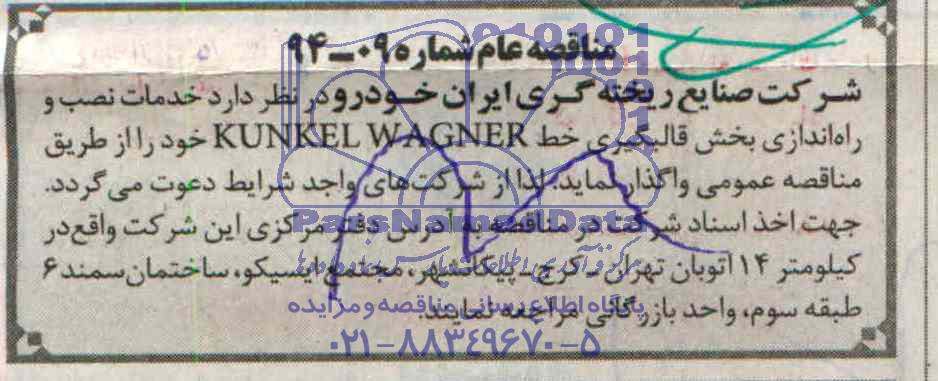 مناقصه عام شماره ۰۹-۹۴
شرکت صنایع ریخته گری ایران خودرو در نظر دارد خدمات نصب و
راه‌اندازی بخش قالبگیری خط KUNKEL WAGNER خود را از طریق
مناقصه عمومی واگذار نماید. لذا از شرکت‌های واجد شرایط دعوت می گردد.
جهت اخذ اسناد شرکت در مناقصه به آدرس دفتر مرکزی این شرکت واقع در
کیلومتر ۱۴ اتوبان تهران - کرج - پیکانشهر، مجتمع ایسیکو، ساختمان سمند ۶
طبقه سوم، واحد بازرگانی مراجعه نمایند.
ParsNamadData
پایگاه اطلاع رسانی مناقصه و مزایده
۰۲۱-۸۸۳۴۹۶۷۰-۵